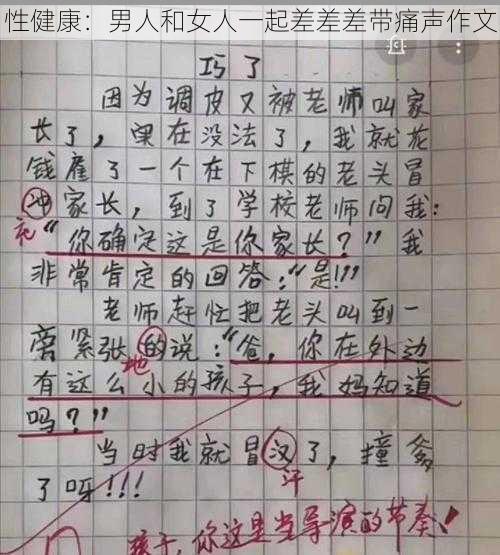 性健康：男人和女人一起差差差带痛声作文
巧了
因为调皮又被老师叫家
长了，实在没法了，我就花
钱雇了一个在下棋的老头冒
冲家长，到了学校老师问我：
充
“你确定这是你家长？”我
非常肯定的回答：“是!!!”
老师赶忙把老头叫到一
旁紧张的说：“爸，你在外边
地
有这么小的孩子，我妈知道
吗？”
当时我就冒汉了，撞爹
汗
了呀!!!
孩子，你这是当导演的节奏！